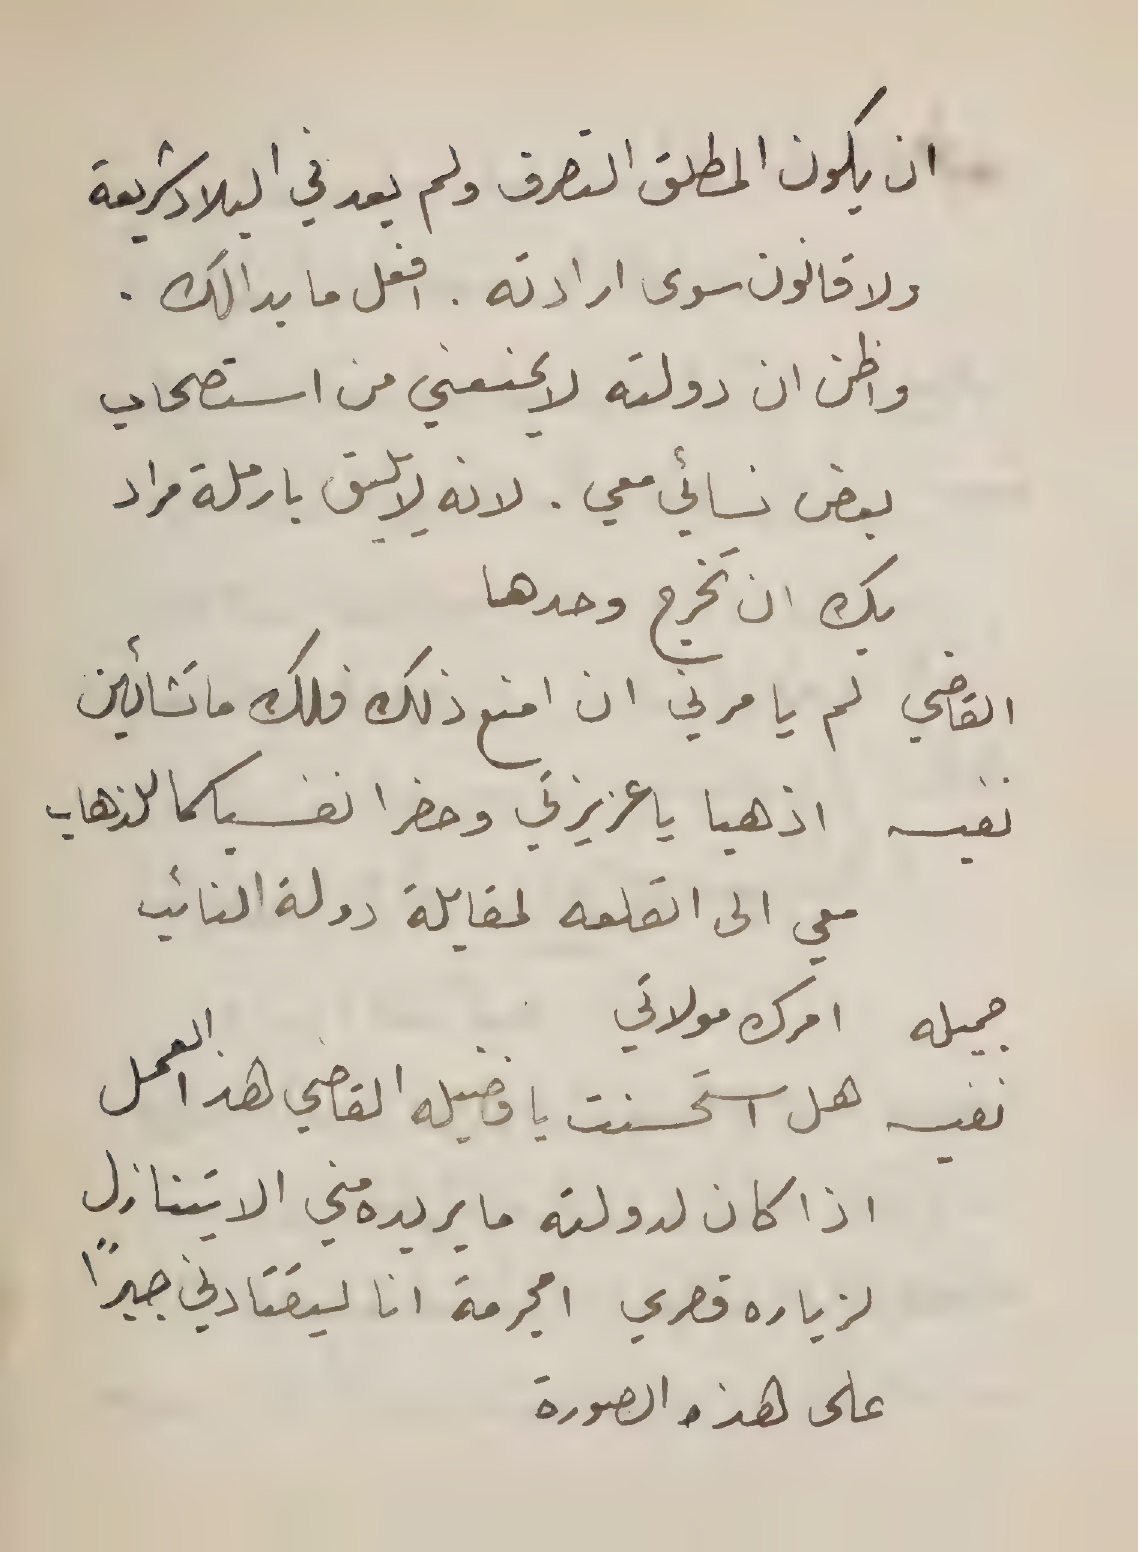 ان يكون المطلق التصرف ولم يعد في البلاد شريعة
ولا قانون سوى ارادته . افعل ما بدا لك .
واظن ان دولته لا يمنعني من استصحاب
بعض نسائي معي . لانه لا يليق بارملة مراد
بك ان تخرج وحدها
القاضي لم يامرني ان امنع ذلك فلك ما تشائين
نفيسه اذهبا يا عزيزتي وحضرا نفسيكما للذهاب
معي الى القلعه لمقابلة دولة النائب
جميله امرك مولاتي
نفيسه هل استحسنت يا فضيله القاضي هذا العمل
اذا كان لدولته ما يريده مني الا يتنازل
لزياره قصري امجرمة انا ليقتادني جبرًا
على هذه الصورة